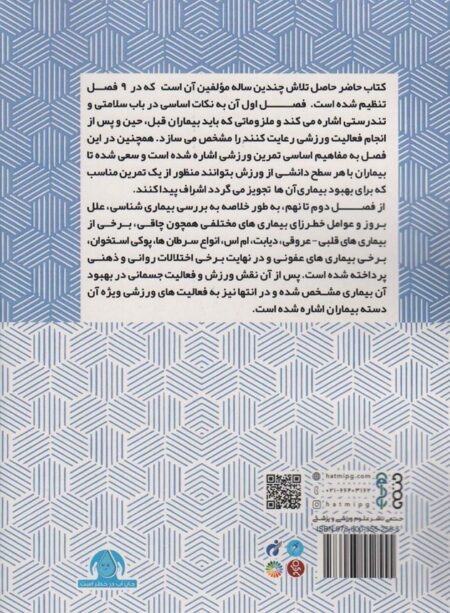 کتاب حاضر حاصل تلاش چندین ساله مؤلفین آن است که در ۹ فصل
تنظیم شده است. فصل اول آن به نکات اساسی در باب سلامتی و
تندرستی اشاره می کند و ملزوماتی که باید بیماران قبل، حین و پس از
انجام فعالیت ورزشی رعایت کنند را مشخص می سازد. همچنین در این
فصل به مفاهیم اساسی تمرین ورزشی اشاره شده است و سعی شده تا
بیماران با هر سطح دانشی از ورزش بتوانند منظور از یک تمرین مناسب
که برای بهبود بیماری آن ها تجویز می گردد اشراف پیدا کنند.
از فصل دوم تا نهم، به طور خلاصه به بررسی بیماری شناسی، علل
بروز و عوامل خطرزای بیماری های مختلفی همچون چاقی، برخی از
بیماری های قلبی-عروقی، دیابت، ام اس، انواع سرطان ها، پوکی استخوان،
برخی بیماری های عفونی و در نهایت برخی اختلالات روانی و ذهنی
پرداخته شده است. پس از آن نقش ورزش و فعالیت جسمانی در بهبود
آن بیماری مشخص شده و در انتها نیز به فعالیت های ورزشی ویژه آن
دسته بیماران اشاره شده است.
hatmipg.com
hatmipg
حتمی
جان آب در خطر است